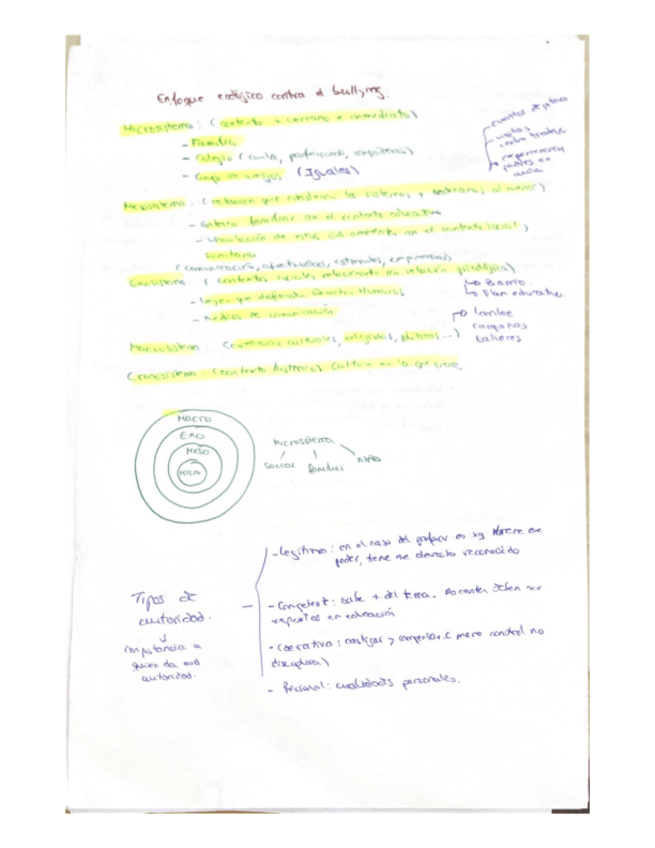 Enfoque ecológico contra el bullying.
Microsistema: (contexto + cercano e inmediato)
- Familia
- Colegio (aula, profesorado, compañeros)
- Grupo de amigos (Iguales)
cuentos
visitas
padres en
aula
Mesosistema: (relación que los sistemas + al menor)
- Entorno familiar con el contexto educativo
- Vinculación de estos dos ambientes con el contexto local y
sanitario
(comunicación, afectividad, estímulos,
Exosistema: (contextos sociales en relación psicológica)
- Leyes que defienden Derechos Humanos
- Medios de comunicación
Barrio.
Plan educativo.
campañas
talleres
Macrosistema: (creencias culturales, religiosas, políticas...)
Cronosistema: (contexto histórico, Cultura en la que crece.
MACRO
EXO
MESO
MICRO
Microsistema
Social familiar
Tipos de
autoridad.
importancia a
quien da esa
autoridad.
- Legítima: en el caso del profesor es xq tiene ese
poder, tiene ese derecho reconocido
- Competente: sabe + del tema. Docentes deben ser
expertos en educación
- Coercitiva: castigar y (mero control no
disciplina)
- Personal: cualidades personales.